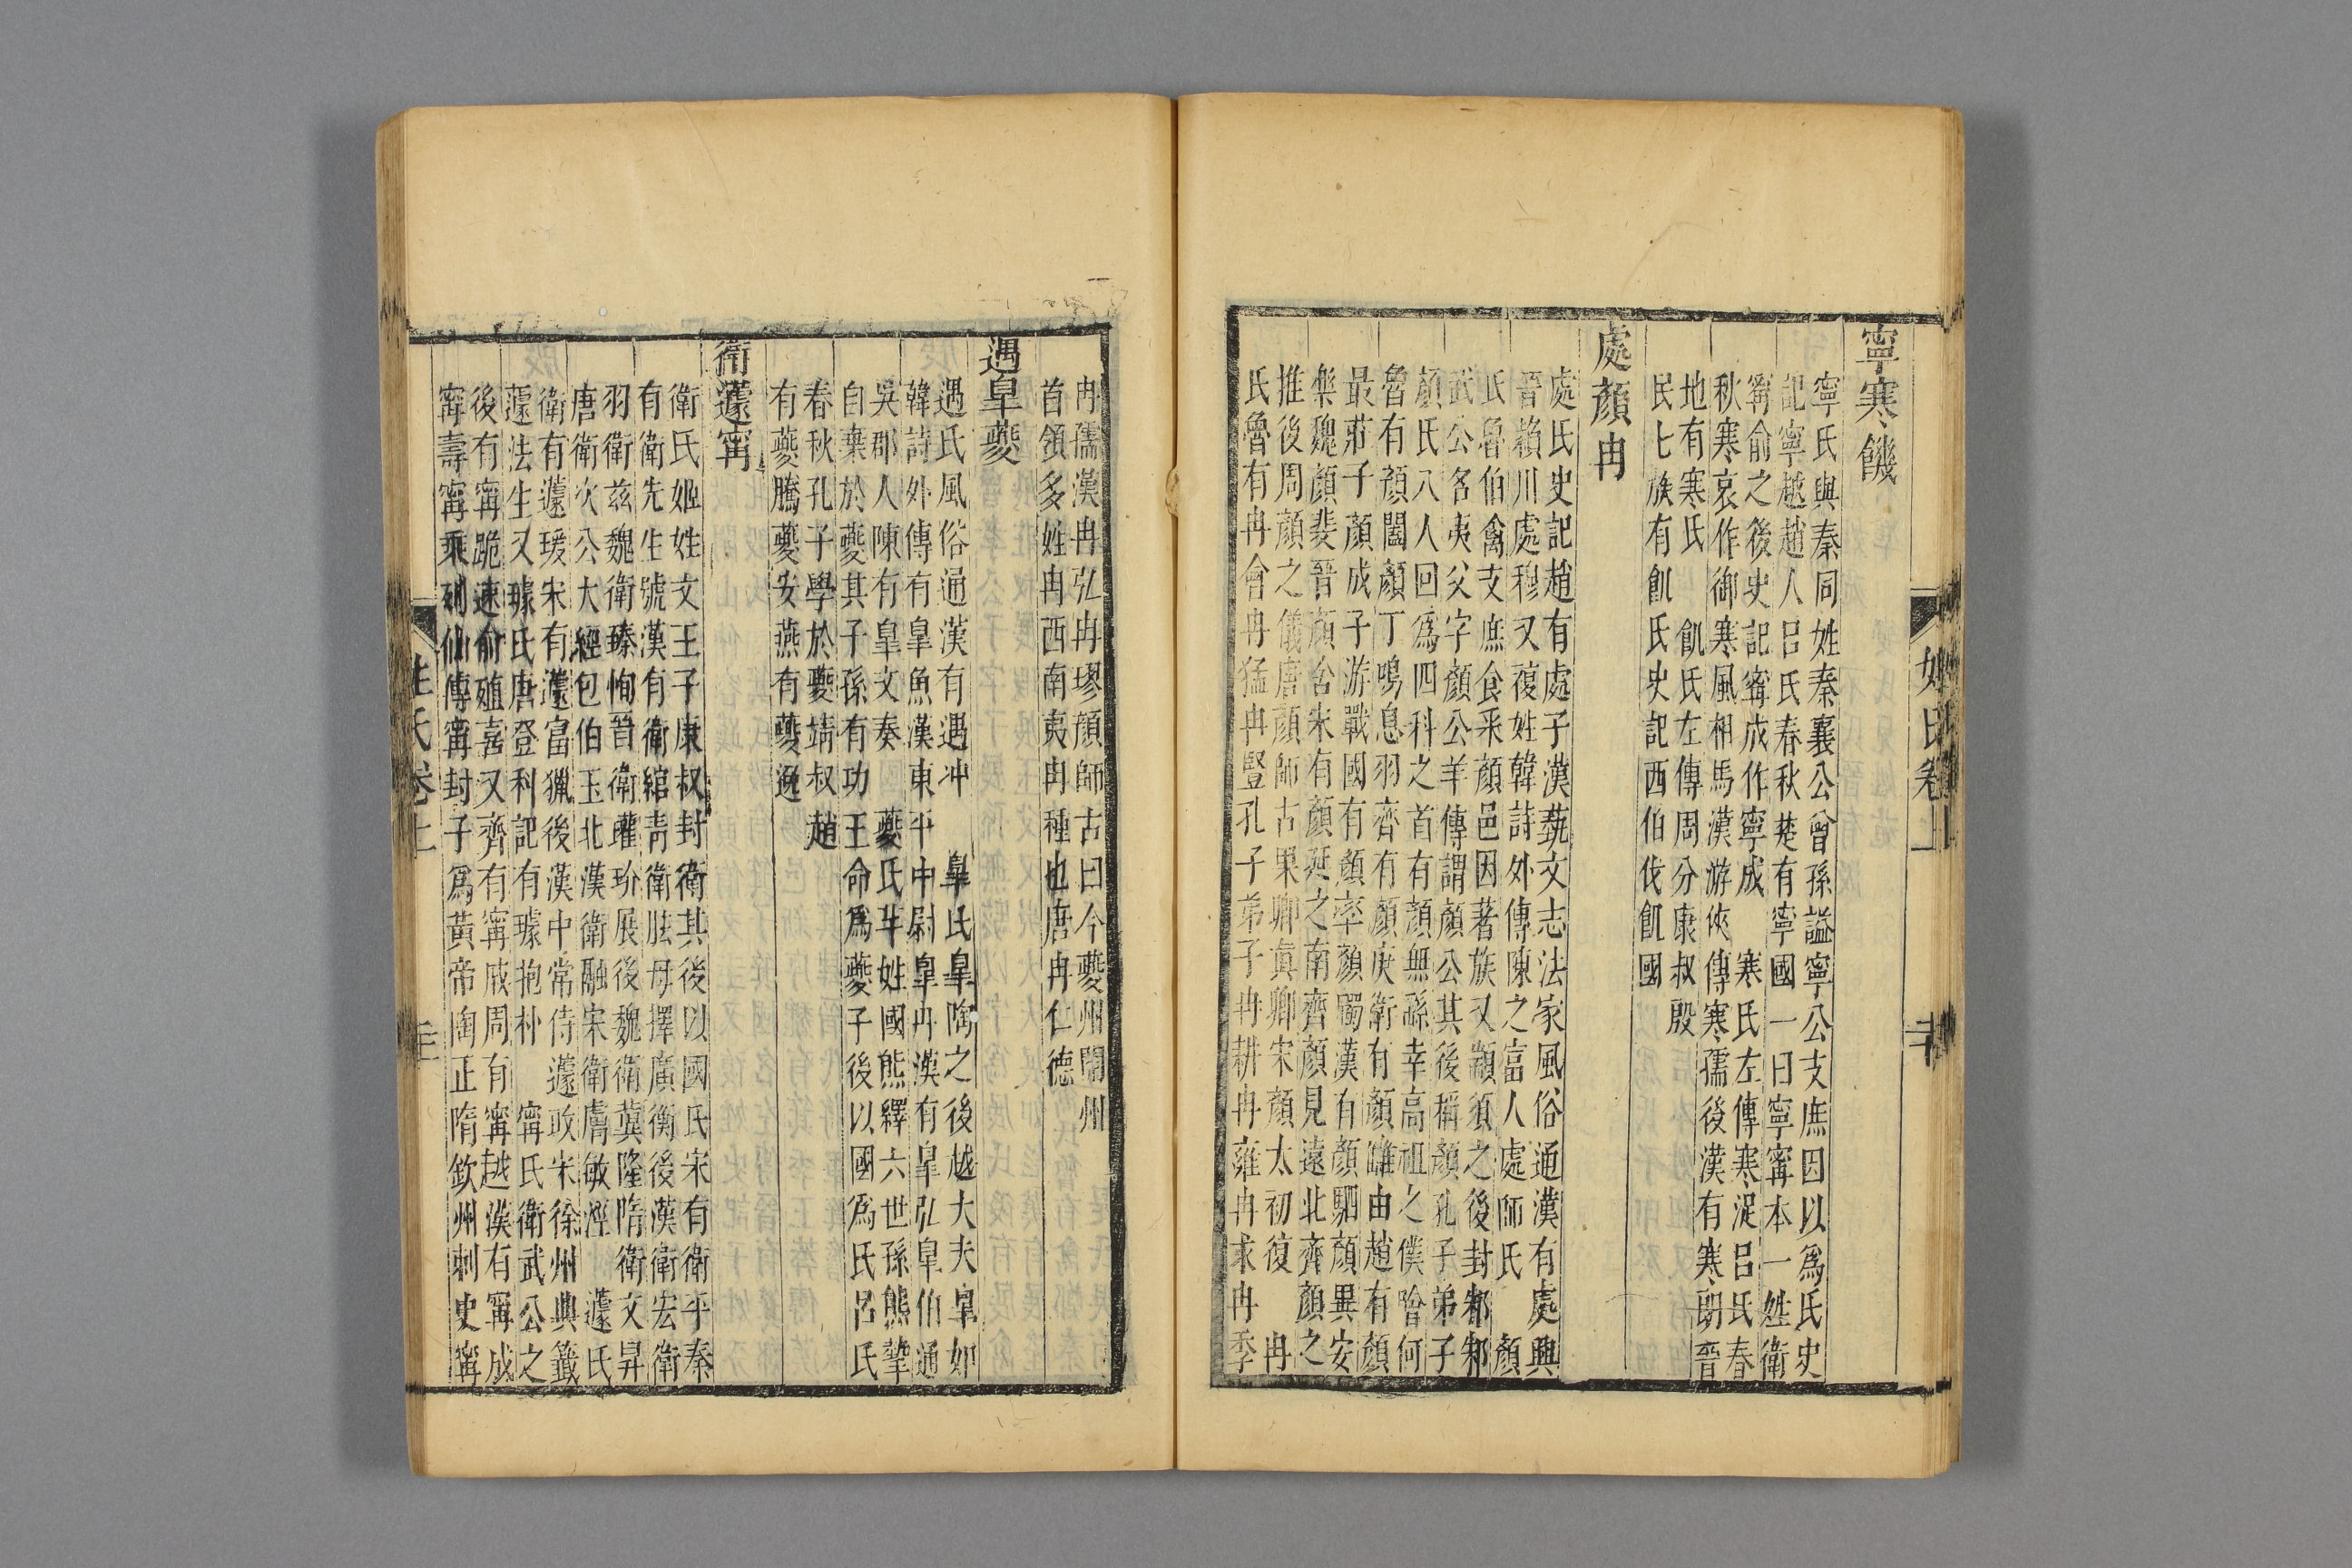 寧寒饑
寧氏與秦同姓秦襄公曾孫謚寧公支庶因以爲氏史
記寧越趙人呂氏春秋楚有寧國一曰寧甯本一姓衛
甯俞之後史記甯成作寧成 寒氏左傳寒浞呂氏春
秋寒哀作御寒風相馬漢游俠傳寒孺後漢有寒朗晉
地有寒氏 飢氏左傳周分康叔殷
民七族有飢氏史記西伯伐飢國
處顏冉
處氏史記趙有處子漢蓺文志法家風俗通漢有處興
晉潁川處穆又複姓韓詩外傳陳之富人處師氏 顏
氏魯伯禽支庶食采顏邑因著族又顓頊之後封邾邾
武公名夷父字顏公羊傳謂顏公其後稱顏孔子弟子
顏氏八人回爲四科之首有顏無繇幸高祖之僕噲何
魯有顏闔顏丁鳴息羽齊有顏庚衛有顏讎由趙有顏
最莊子顏成子游戰國有顏率顏斶漢有顏駟顏異安
樂魏顏斐晉顏含宋有顏延之南齊顏見遠北齊顏之
推後周顏之儀唐顏師古杲卿眞卿宋顏太初復 冉
氏魯有冉會冉猛冉豎孔子弟子冉耕冉雍冉求冉季
冉孺漢冉弘冉璆顏師古曰今夔州開州
首領多姓冉西南夷冉種也唐冉仁德
遇皐夔
遇氏風俗通漢有遇冲 皐氏皐陶之後越大夫皐如
韓詩外傳有皐魚漢東平中尉皐冉漢有皐弘皐伯通
吳郡人陳有皐文奏 夔氏芈姓國熊繹六世孫熊摯
自棄於夔其子孫有功王命爲夔子後以國爲氏呂氏
春秋孔子學於夔靖叔趙
有夔騰夔安燕有夔逸
衛蘧甯
衛氏姬姓文王子康叔封衛其後以國氏宋有衛平秦
有衛先生號漢有衛綰靑衛胠母擇廣衡後漢衛宏衛
羽衛茲魏衛臻恂晉衛瓘玠展後魏衛冀隆隋衛文昇
唐衛次公大經包伯玉北漢衛融宋衛膚敏涇 蘧氏
衛有蘧瑗宋有蘧富獵後漢中常侍蘧政宋徐州典籤
蘧法生又璩氏唐登科記有璩抱朴 甯氏衛武公之
後有甯跪速俞殖喜又齊有甯戚周有甯越漢有甯成
甯壽甯乘列仙傳甯封子爲黃帝陶正隋欽州刺史甯
姓氏卷上